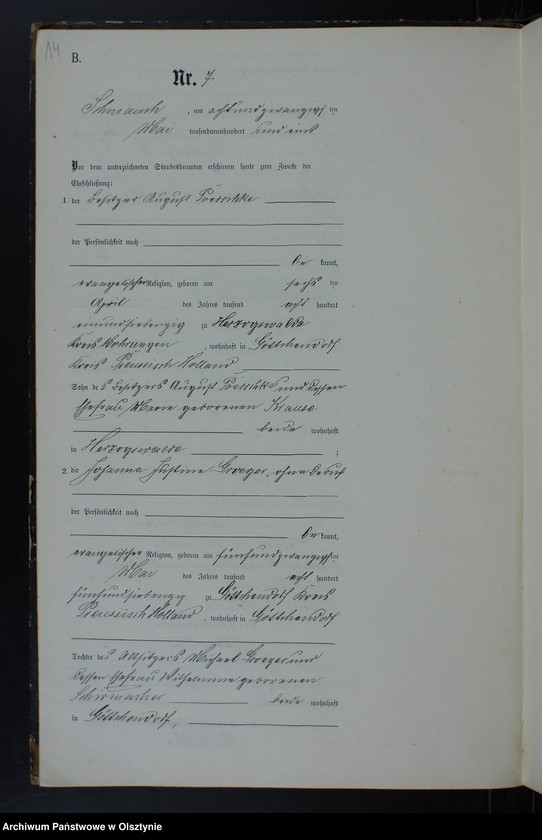 14
B.
Nr. 7
Schmauch, am achtundzwanzigsten
Mai tausendneunhundert und eins
Vor dem unterzeichneten Standesbeamten erschienen heute zum Zwecke der
Eheschließung:
1. der Besitzer August
der Persönlichkeit nach
be kannt,
evangelischer Religion, geboren am sechsten
April des Jahres tausend acht hundert
einundsiebenzig zu Herzogswalde
Kreis Mohrungen, wohnhaft in Göttchendorf
Kreis Preussisch Holland
Sohn des Besitzers August und dessen
Ehefrau Marie geborenen Krause
beide wohnhaft
in Herzogswalde ;
2. die Johanna Justine Groeger, ohne Beruf
der Persönlichkeit nach
be kannt,
evangelischer Religion, geboren am fünfundzwanzigsten
Mai des Jahres tausend acht hundert
fünfundsiebenzig zu Göttchendorf Kreis
Preussisch Holland, wohnhaft in Göttchendorf
Tochter des Altsitzers Michael Groeger und
dessen Ehefrau Wilhelmine geborenen
Schirrmacher beide wohnhaft
in Göttchendorf;
Archiwum Państwowe w Olsztynie